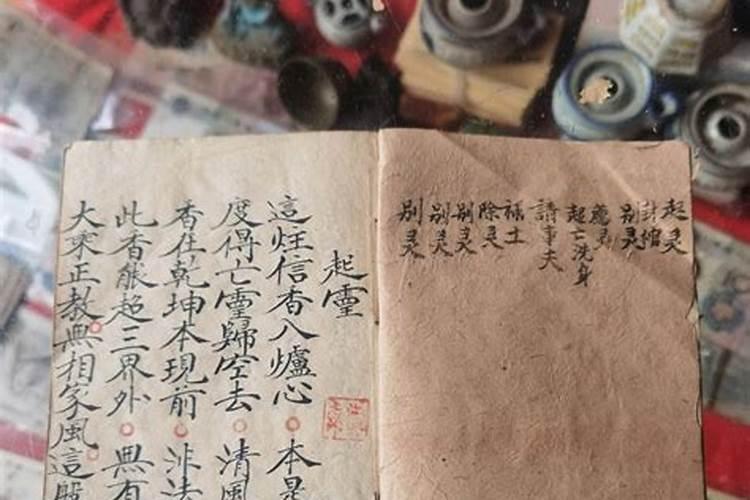 起灵
封棺
别灵
荐灵
起亡洗身
請事夫
禄土
除灵
别灵
别灵
别灵
起靈
這炷信香入爐心 本是
度得亡靈歸空去 清風
香在乾坤本現前 非法
此香能超三界外 無有
大乘正教無相家風這般